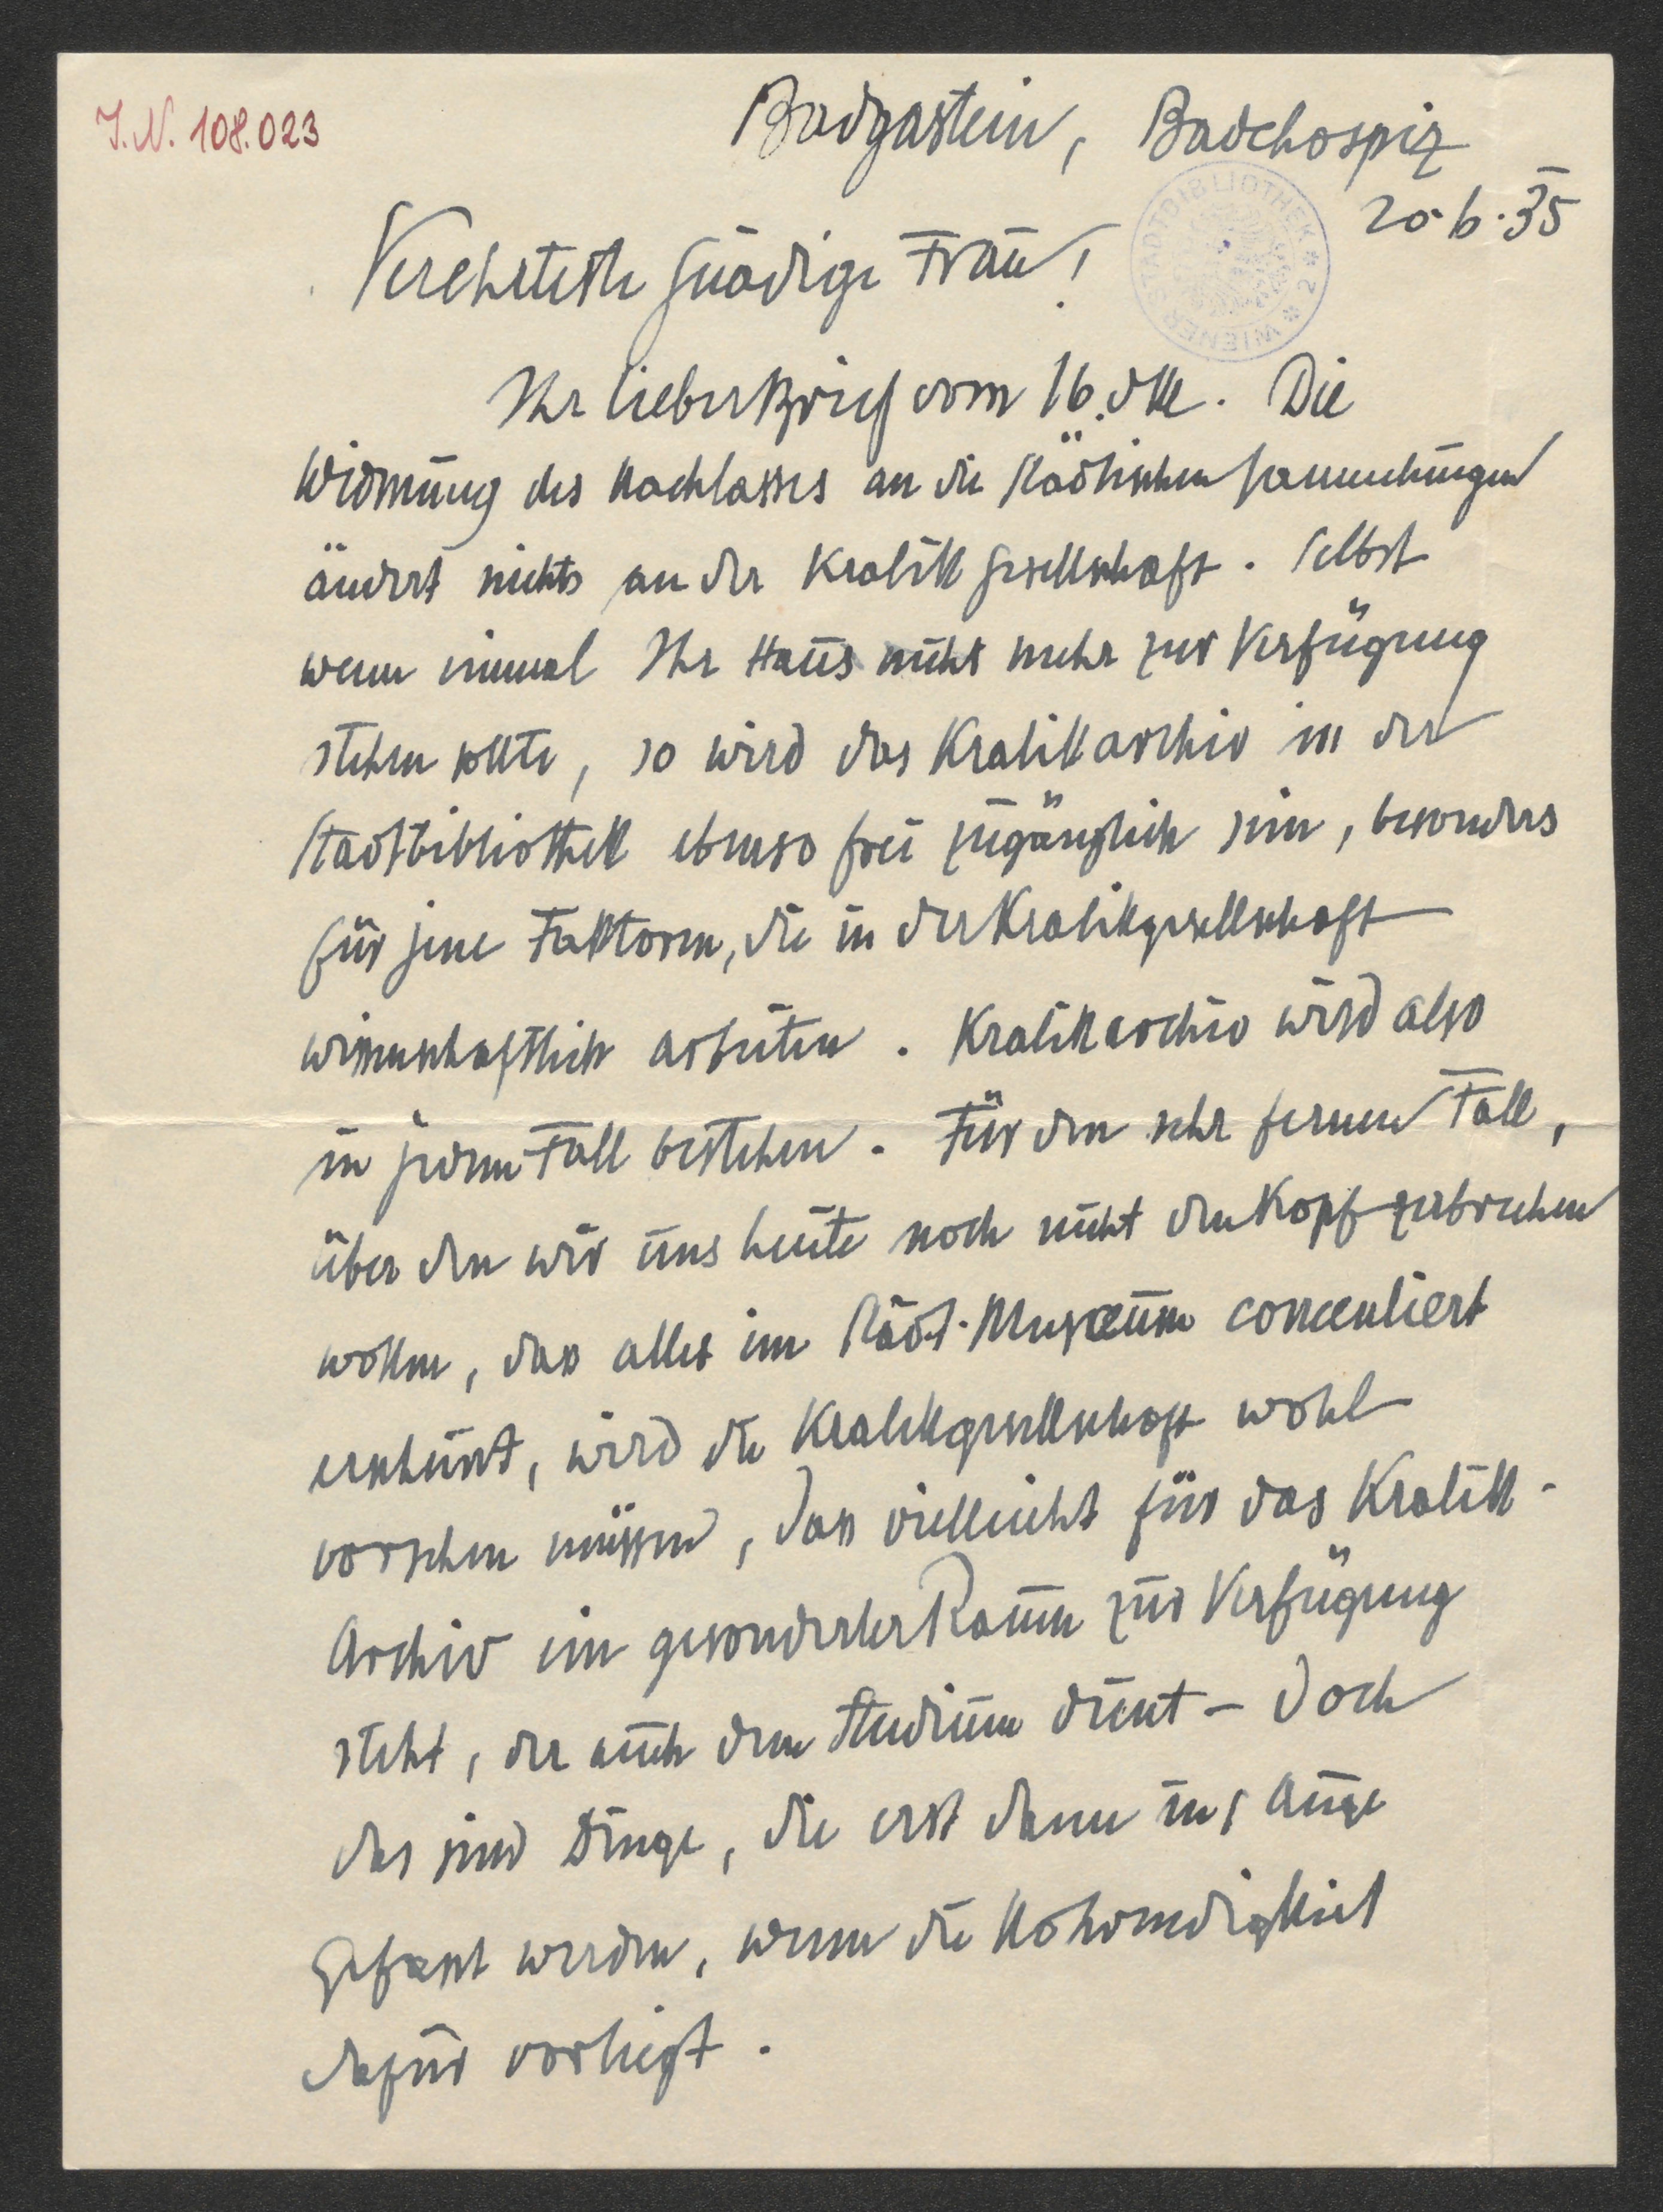 J.N. 108.023
Badgastein, Badehospiz
20.6.35
WIENER STADTBIBLIOTHEK * 2 *
Verehrteste gnädige Frau!
Ihr lieber Brief vom 16. Die
Widmung des Nachlasses an die städtischen Sammlungen
ändert nichts an der Kralikgesellschaft. Selbst
wenn einmal Ihr Haus nicht mehr zur Verfügung
stehen sollte, so wird das Kralikarchiv in der
Stadtbibliothek ebenso frei zugänglich sein, besonders
für jene Faktoren, die in der Kralikgesellschaft
wissenschaftlich arbeiten. Kralikarchiv wird also
in jedem Fall bestehen. Für den sehr fernen Fall,
über den wir uns heute noch nicht den Kopf zerbrechen
wollen, dass alles im städt. Museum
erscheint, wird die Kralikgesellschaft wohl
vorsehen müssen, dass vielleicht für das Kralik-
Archiv ein gesonderter Raum zur Verfügung
steht, der auch dem Studium dient – doch
das sind Dinge, die erst dann ins Auge
gefasst werden, wenn die Notwendigkeit
dafür vorliegt.